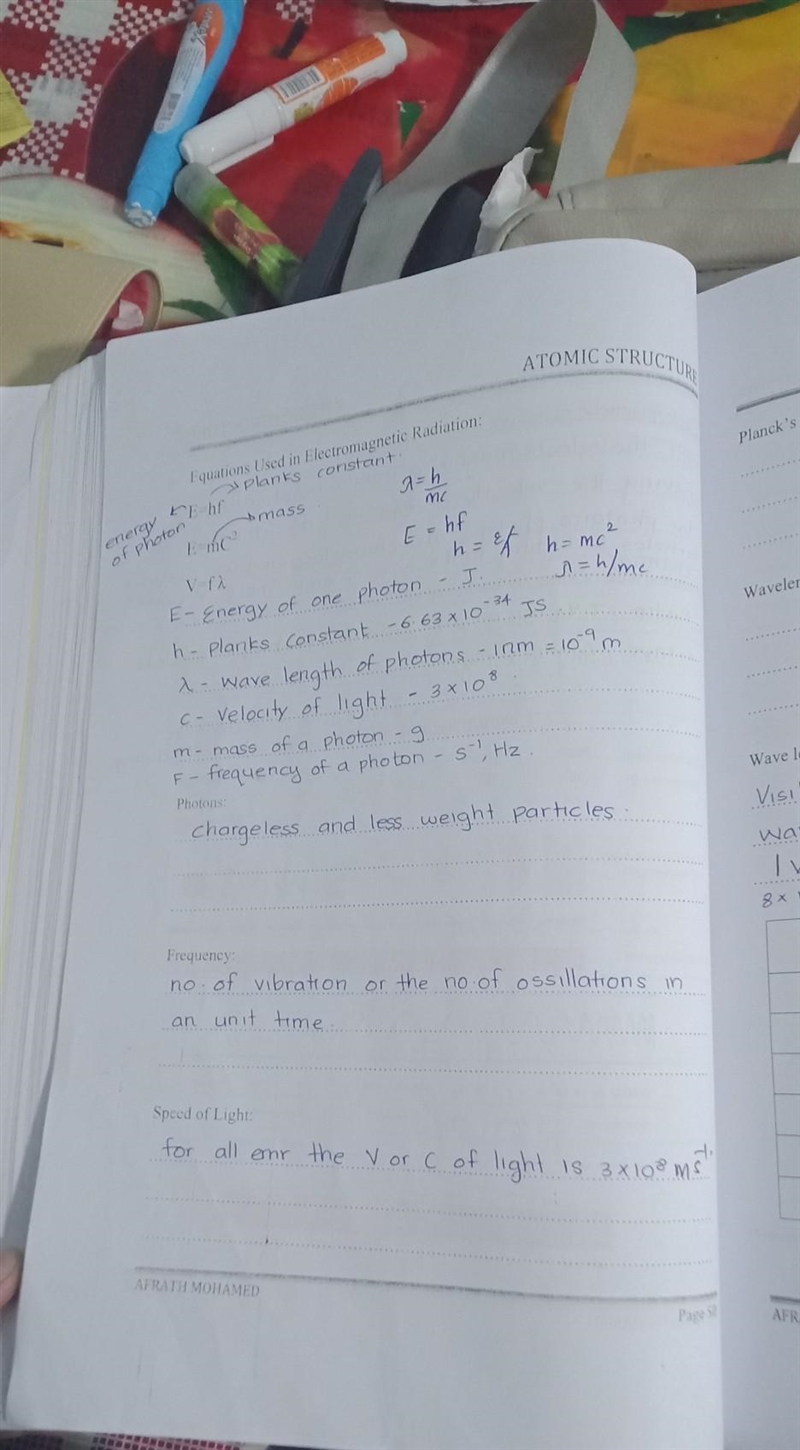 ATOMIC STRUCTURE
Equations Used in Electromagnetic Radiation:
planks constant.
E=hf
energy of photon
mass
E=mC²
V=fλ
λ = h/mc
E = hf
h = E/f h = mc²
λ = h/mc
E - Energy of one photon - J.
h - planks constant - 6.63 × 10⁻³⁴ JS
λ - wave length of photons - 1nm = 10⁻⁹ m
c - velocity of light - 3 × 10⁸.
m - mass of a photon - g
F - frequency of a photon - s⁻¹, Hz.
Photons:
chargeless and less weight particles.
Frequency:
no. of vibration or the no. of ossillations in
an unit time.
Speed of Light:
for all emr the V or C of light is 3 × 10⁸ ms⁻¹.
AFRATH MOHAMED
Page
Planck's
Wave l
Visi
wa
8×
AFR